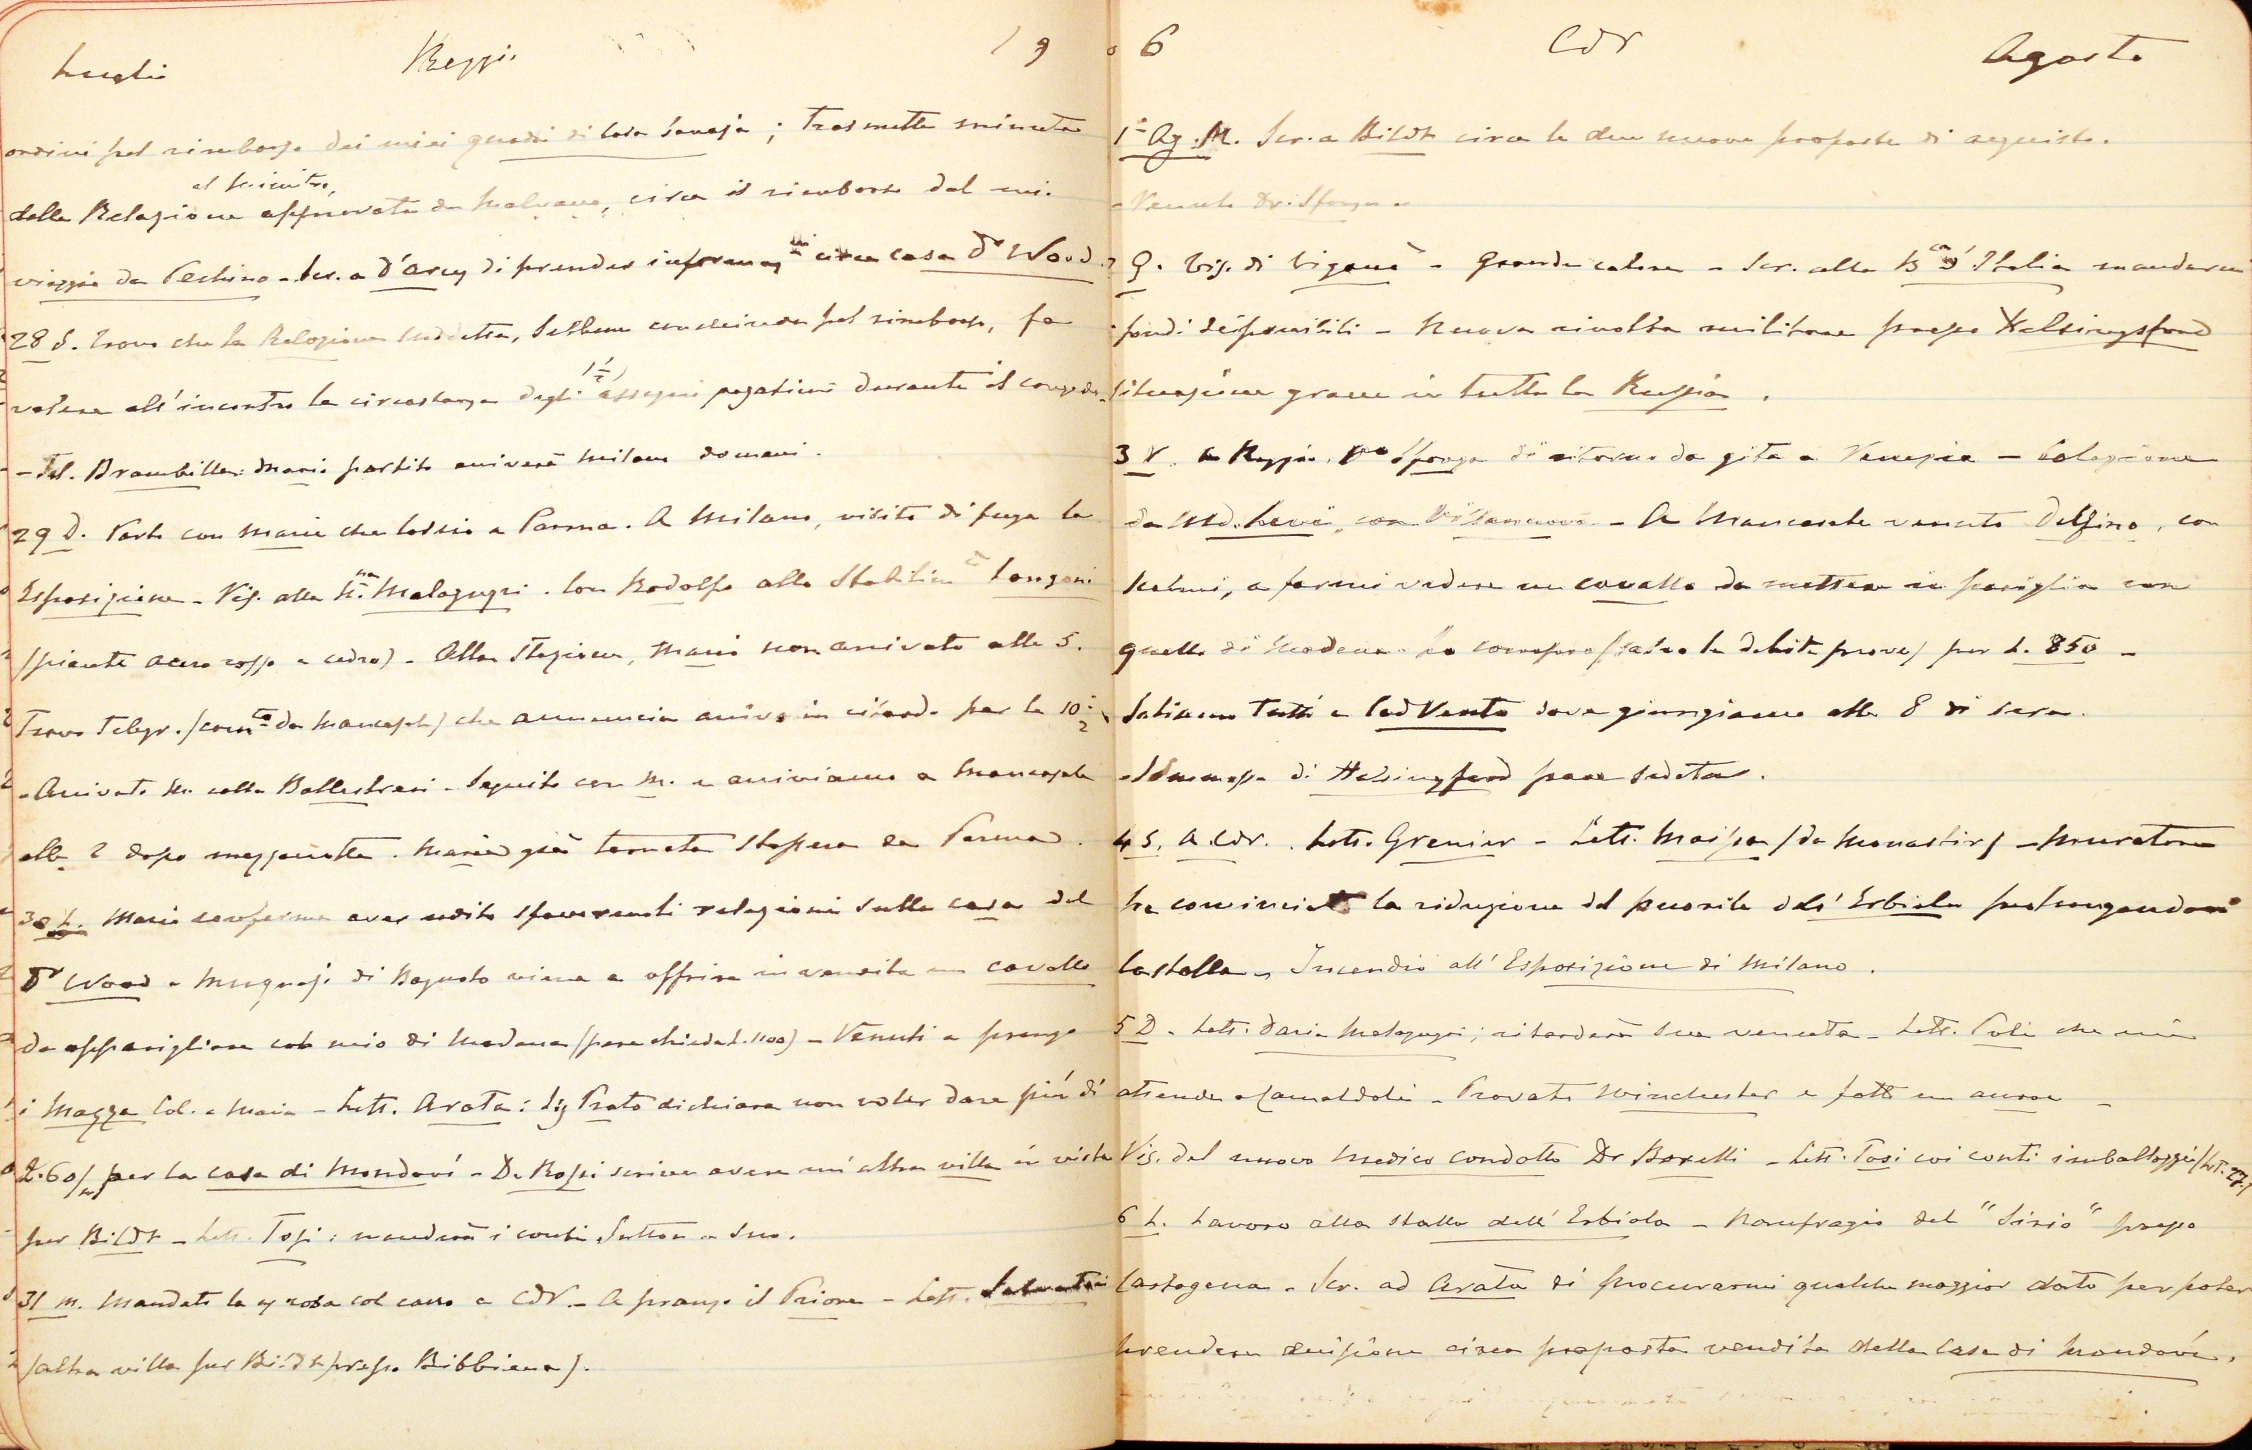 Luglio Reggio 19
ordini pel rimborso dei miei quadri di Casa Savoja; trasmette minuta
al Ministro,
della Relazione approvata da Malvano, circa il rimborso del mio
viaggio da Pechino - Scr. a d'Arcy di prender informaz.ni circa casa Dr Wood.
28 S. Trovo che la Relazione suddetta, sebbene concluda pel rimborso, fa
valere all'incontro la circostanza degli (½) assegni pagatimi durante il congedo.
- Tel. Brambilla: Mario partito arriverà Milano domani.
29 D. Parto con Maria che lascio a Parma. A Milano, visito di fuga la
Esposizione - Vis. alla M.sa Malaguzzi. Con Rodolfo allo Stabilim.o Longoni
(piante acero rosso e cedro) - Alla Stazione, Mario non arrivato alle 5.
Trovo Telegr. (com.to da Mancasale) che annuncia arrivo in ritardo per le 10½
- Arrivato M. colla Ballestreri - Seguito con M. e arriviamo a Mancasale
alle 2 dopo mezzanotte. Maria già tornata stassera da Parma.
30 L. Mario conferma aver udito sfavorevoli relazioni sulla casa del
Dr Wood - di Bagnolo viene a offrire in vendita un cavallo
da apparigliare col mio di Modena (pare chieda L. 1100) - Venuti a pranzo
i Mazza Col. e Maria - Lett. Arata: Sig Prato dichiara non voler dare più di
L. 60/m per la casa di Mondovì - De Rossi scrive avere un'altra villa in vista
per Bildt - Lett. Tosi: manderà i conti Sutton e suo.
31 M. Mandato la col carro a CdV. - A pranzo il Priore - Lett.
(altra villa per Bildt presso Bibbiena).
06 CdV Agosto
1° Ag. M. Scr. a Bildt circa le due nuove proposte di acquisto.
- Venuto Dr. Sforza -
2 G. Vis. di Viganò - Grande calore - Scr. alla B.ca d'Italia mandarmi
fondi disponibili - Nuova rivolta militare presso Helsingsford
situazione grave in tutta la Russia.
3 V. A Reggio. Sforza di ritorno da gita a Venezia - Colazione
da Md. Levi, con Villanuova - A Mancasale venuto Delfino, con
a farmi vedere un cavallo da mettere in pariglia con
quello di Modena. Lo compro (salvo le debite prove) per L. 850 -
Saliamo tutti a Cadvento dove giungiamo alle 8 di sera.
- Sommossa di Helsingford pare sedata.
4 S. A CdV. . Lett. Grenier - Lett. Maissa (da Monastir) - Muratore
ha cominciato la riduzione del porcile dell'Erbiola prolungandovi
la stalla - Incendio all'Esposizione di Milano.
5 D. Lett. Daria Malaguzzi; ritarderà sua venuta - Lett. Poli che mi
attende a Camaldoli - Provato Winchester e fatto un
Vis. del nuovo Medico condotto Dr Borelli - Lett. Tosi coi conti imballaggio
6 L. Lavoro alla stalla dell'Erbiola - Naufragio del "Sirio" presso
Cartagena - Scr. ad Arata di procurarmi qualche maggior dato per poter
prendere decisione circa proposta vendita della Casa di Mondovì.